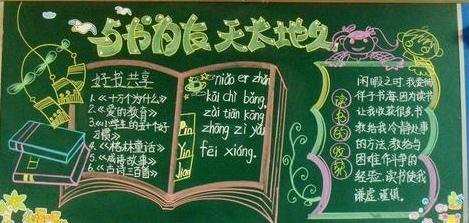 与书为友 天长地久
好书共享
1.《十万个为什么》
2.《爱的教育》
3.《小学生的五十个好
习惯》
4.《格林童话》
5.《成语故事》
6.《古诗三百首》
niǎo er zhǎn
kāi chì bǎng,
zài tiān kōng
zhōng zì yóu
fēi xiáng.
Pin
Yin
Jiao
读书的收获
闲暇之时,我要徜
徉于书海,因为读书
让我收获很多,书
教给我冷静处事
的方法,教给与
困难作斗争的
经验.读书使我
谦虚 谨慎.